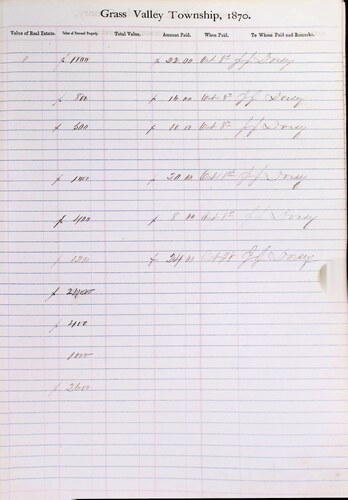 Grass Valley Township, 1870.
Value of Real Estate. Value of Personal Property. Total Value. Amount Paid. When Paid. To Whom Paid and Remarks.
$ 1100 $ 22.00 Oct 8th J J Dorsey
$ 800 $ 16 00 Oct 8th J J Dorsey
$ 500 $ 10 00 Oct 8th J J Dorsey
$ $ 20.00 Oct 8th J J Dorsey
$ 400 $ 8 00 Oct 8th J J Dorsey
$ 1200 $ 24 00 Oct J J Dorsey
$
$ 400
1000
$ 2600